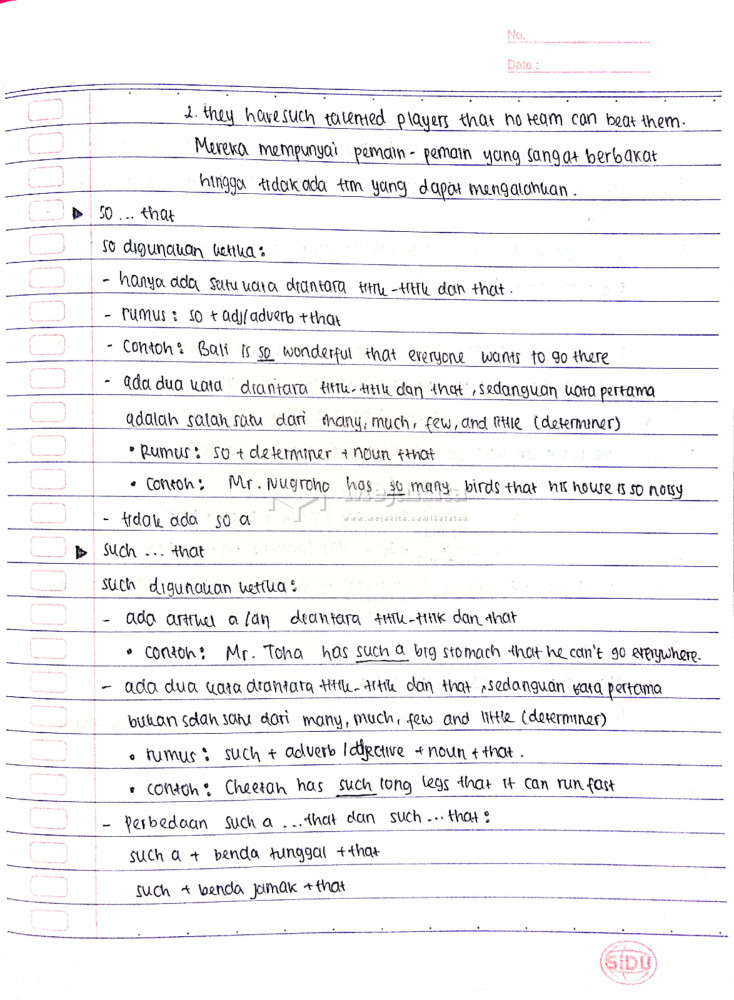 No.
Date :
2. they have such talented players that no team can beat them.
Mereka mempunyai pemain - pemain yang sangat berbakat
hingga tidak ada tim yang dapat mengalahkan.
▶ so ... that
so digunakan ketika:
- hanya ada satu kata diantara titik-titik dan that.
- rumus : so + adj/adverb + that
- contoh : Bali is so wonderful that everyone wants to go there
- ada dua kata diantara titik-titik dan that, sedangkan kata pertama
adalah salah satu dari many, much, few, and little (determiner)
• Rumus : so + determiner + noun + that
• contoh : Mr. Nugroho has so many birds that his house is so noisy
Mejakita
- tidak ada so a
▶ such ... that
such digunakan ketika :
- ada artikel a/an diantara titik-titik dan that
• contoh : Mr. Toha has such a big stomach that he can't go everywhere.
- ada dua kata diantara titik-titik dan that, sedangkan kata pertama
bukan salah satu dari many, much, few and little (determiner)
• rumus : such + adverb/adjective + noun + that.
• contoh : Cheetah has such long legs that it can run fast
- Perbedaan such a ... that dan such ... that :
such a + benda tunggal + that
such + benda jamak + that
SIDU